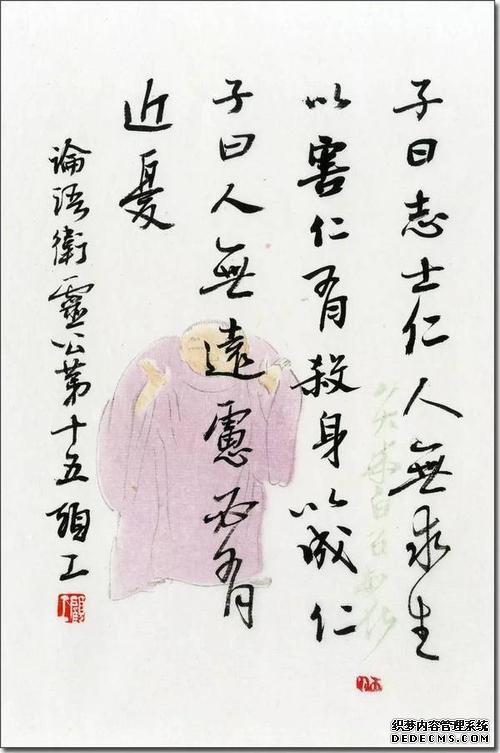 子曰志士仁人無求生
以害仁有殺身以成仁
子曰人無遠慮必有
近憂
論語衛靈公第十五 頋工
织梦内容管理系统
DEDECMS.COM